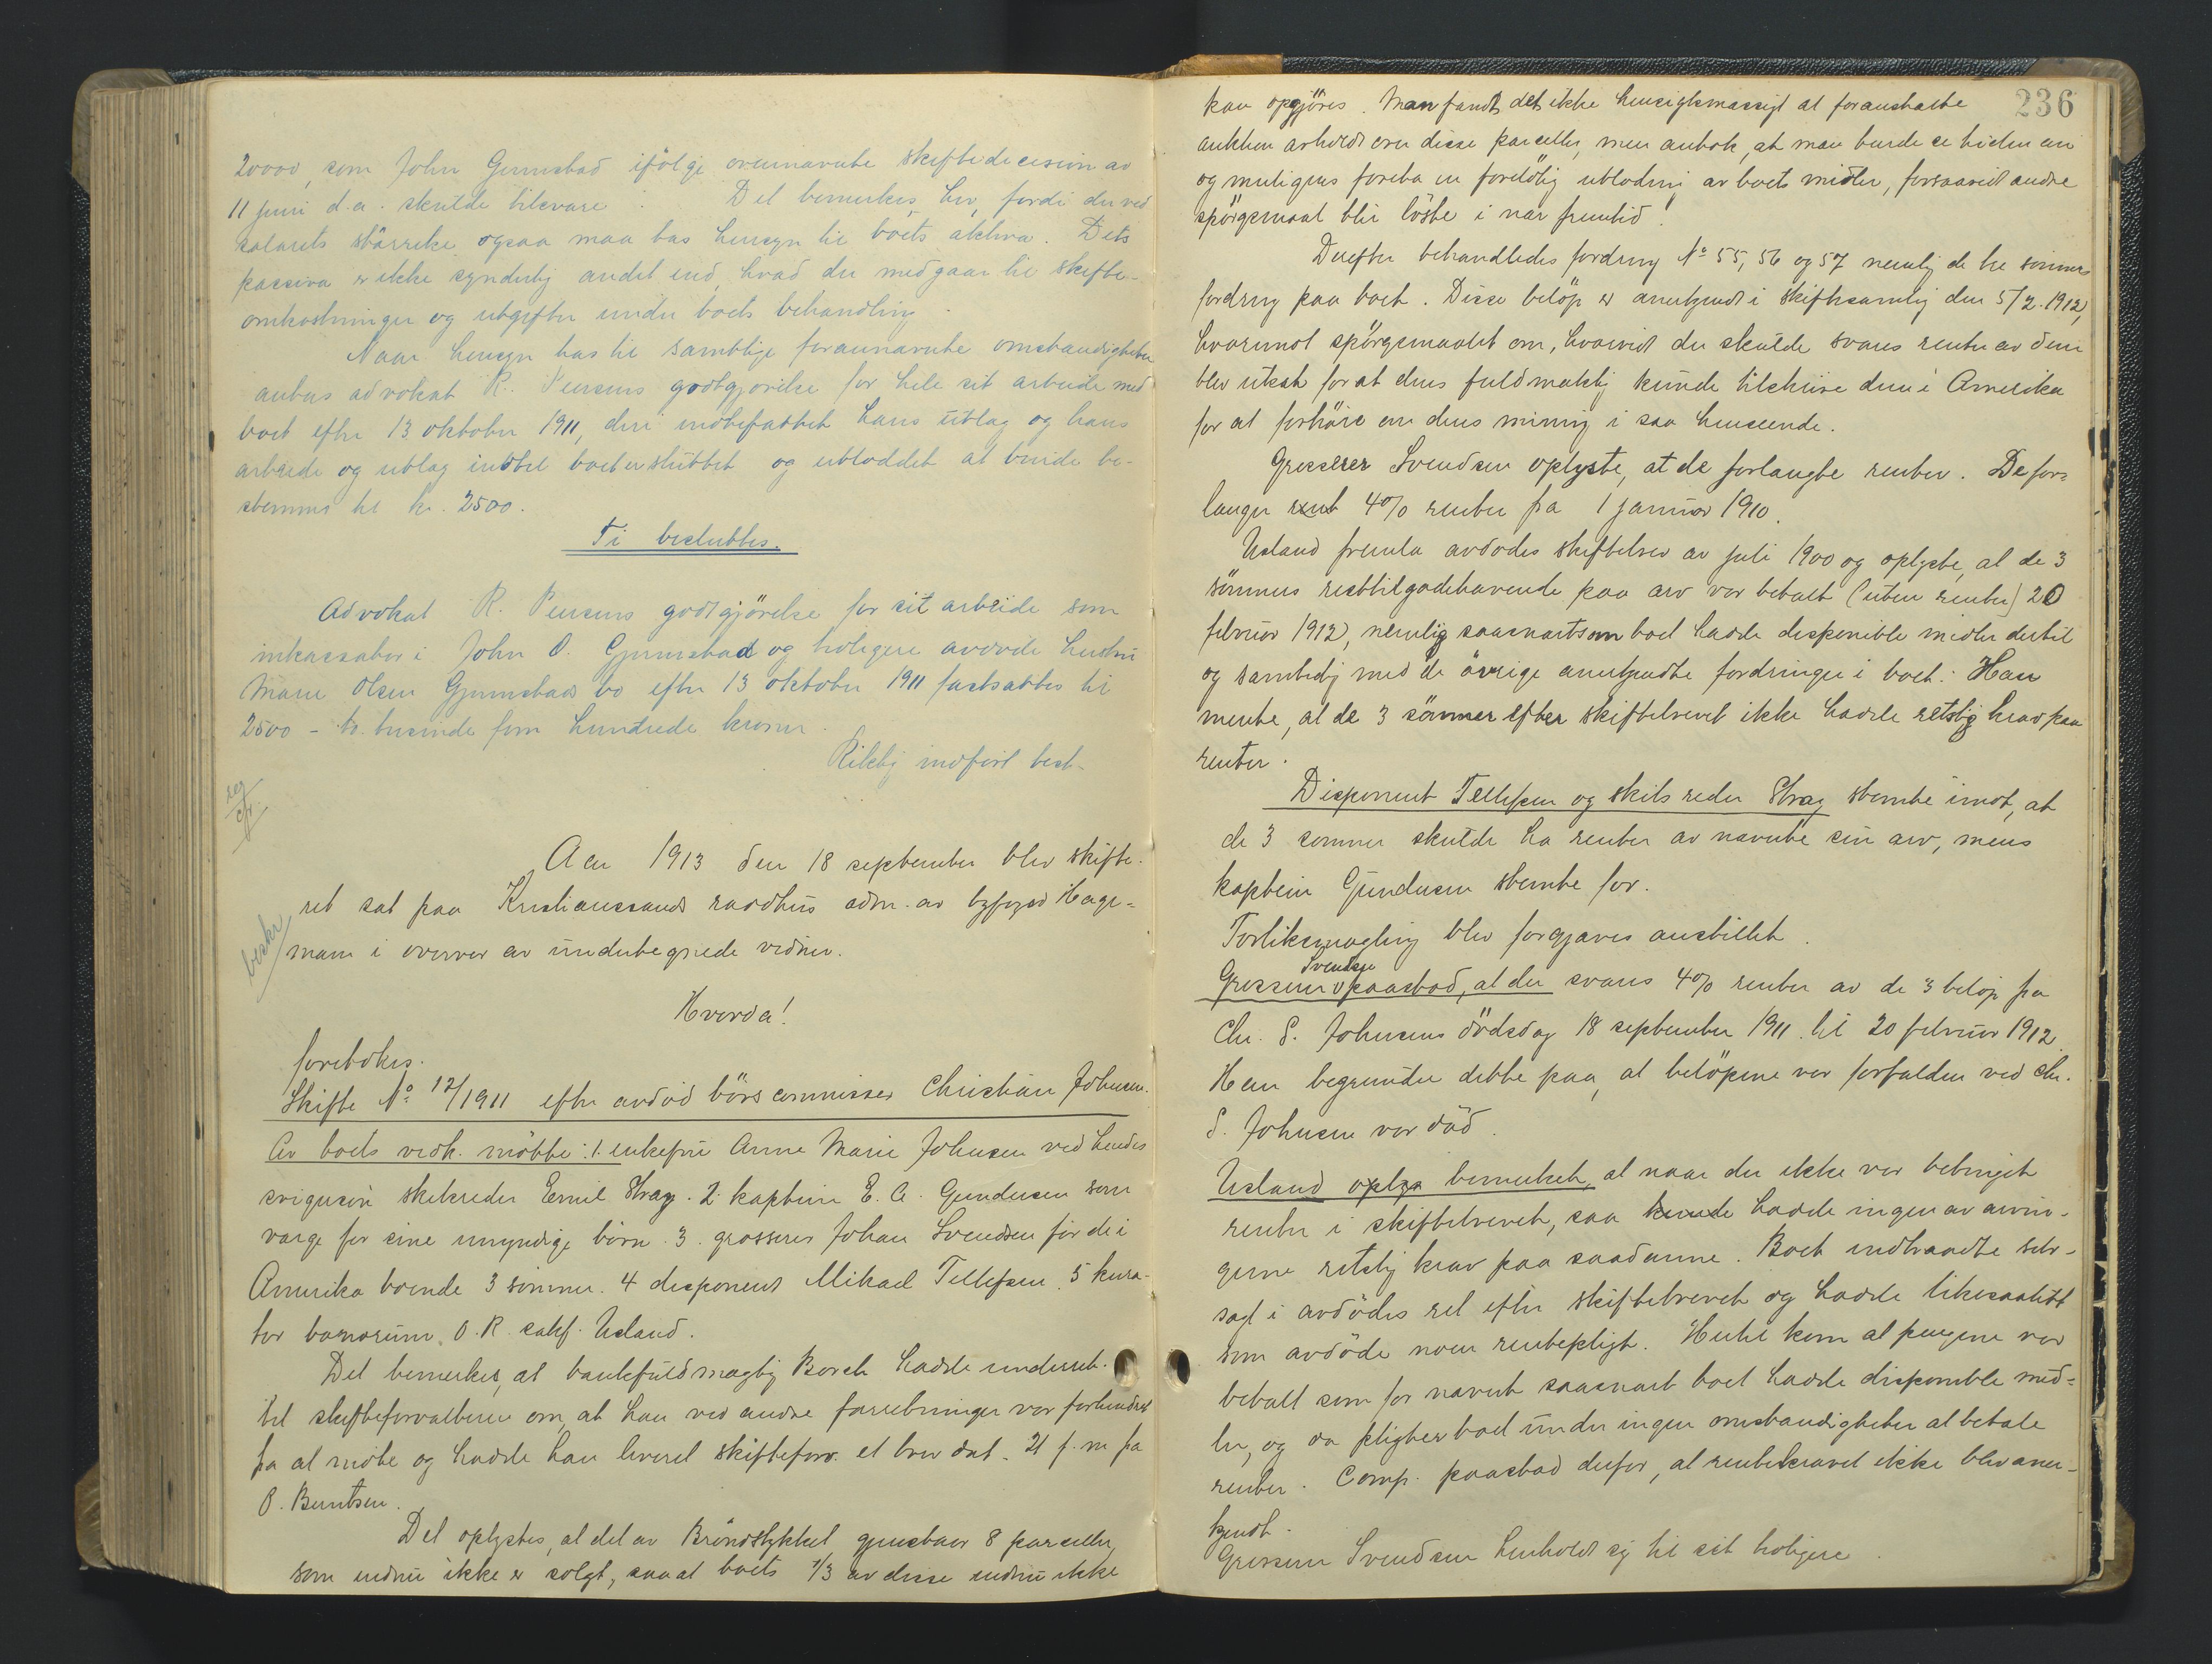 20000, som John Gumestad ifølge ovennævnte skiftedecision av
11 juni d.a. skulde tilsvare. Det bemerkes her, fordi der ved
salærets størrelse ogsaa maa tas hensyn til boets aktiva. Dets
passiva er ikke synderlig andet end hvad der medgaar til skifte-
omkostninger og utgifter under boets behandling.
Naar hensyn tas til samtlige forannævnte omstændigheter
antas advokat R. godtgjørelse for hele sit arbeide med
boet efter 13 oktober 1911, deri indbefattet hans utlag og hans
arbeide og utlag indtil boet er sluttet og utloddet at burde be-
stemmes til kr. 2500.
Ti besluttes.
Advokat R. godtgjörelse for sit arbeide som
inkassator i John O. Gjumestad og tidligere avdøde hustru
Marie Olsen Gjumestads bo efter 13 oktober 1911 fastsættes til
2500 - to tusinde fem hundrede kroner.
Riktig indført best.
Aar 1913 den 18 september blev skifte-
ret sat paa Kristianssands raadhus adm. av byfoged Hage-
mann i overvær av undertegnede vidner.
Hvorda!
foretokes.
Skifte No 12/1911 efter avdöd börscommissær Christian Johnsen.
Av boets vedk. mötte: 1. enkefru Anne Marie Johnsen ved hendes
svigersön skibsreder Emil Stray. 2. kaptein E. A. Gundersen som
værge for sine umyndige börn. 3. grosserer Johan Svendsen for de i
Amerika boende 3 sönner. 4 disponent Mikael Tellefsen. 5 kura-
tor bonorum, O.R. sakf. Usland.
Det bemerkes, at bankfuldmægtig Borch hadde underret-
tet skifteforvalteren om, at han ved andre forretninger var forhindret
fra at møte og hadde han leveret skifteforv. et brev dat. 21 f.m. fra
O. Berntsen.
Det oplystes, at det av Bröndstykket gjenstaar 8 parceller,
som endnu ikke er solgt, saa at boets 1/3 av disse endnu ikke
236
kan opgjöres. Man fandt det ikke hensigtsmæssigt at foranstalte
auktion avholdt over disse parceller, men antok, at man burde se tiden an
og muligens foreta en foreløbig utlodning av boets midler, forsaavidt andre
spörgsmaal blir löste i nær fremtid!
Derefter behandledes fordring No 55, 56 og 57 nemlig de tre sönners
fordring paa boet. Disse belöp er anerkjendt i skiftesamling den 5/2. 1912,
hvorimot spörgsmaalet om, hvorvidt der skulde svares renter av dem
blev utsat for at deres fuldmægtig kunde tilskrive dem i Amerika
for at forhöre om deres mening i saa henseende.
Grosserer Svendsen oplyste, at de forlangte renter. De for-
langer rent 4% renter fra 1 januar 1910.
Usland fremla avdødes skiftebrev av juli 1900 og oplyste, at de 3
sönners resttilgodehavende paa arv var betalt (uten renter) 20
februar 1912, nemlig saasnart som boet hadde disponible midler dertil
og samtidig med de övrige anerkjendte fordringer i boet. Han
mente, at de 3 sönner efter skiftebrevet ikke hadde retslig krav paa
renter.
Disponent Tellefsen og skibsreder Stray stemte imot, at
de 3 sönner skulde ha renter av nævnte sin arv, mens
kaptein Gundersen stemte for.
Forliksmægling blev forgjæves anstillet.
Svendsen
Grosserer v paastod, at der svares 4% renter av de 3 belöp fra
Chr. S. Johnsens dödsdag 18 september 1911 til 20 februar 1912.
Han begrunder dette paa, at belöpene var forfalden ved Chr.
S. Johnsen var död.
Usland oplys bemerket, at naar der ikke var betinget
renter i skiftebrevet, saa kunde hadde ingen av arvin-
gerne retslig krav paa saadanne. Boet indtraadte selv-
sagt i avdödes ret efter skiftebrevet og hadde likesaalitt
som avdöde noen rentepligt. Hertil kom at pengene var
betalt som för nævnt saasnart boet hadde disponible mid-
ler, og da pligter boet under ingen omstændigheter at betale
renter. Comp. paastod derfor, at rentekravet ikke blev aner-
kjendt.
Grosserer Svendsen henholdt sig til sit tidligere.